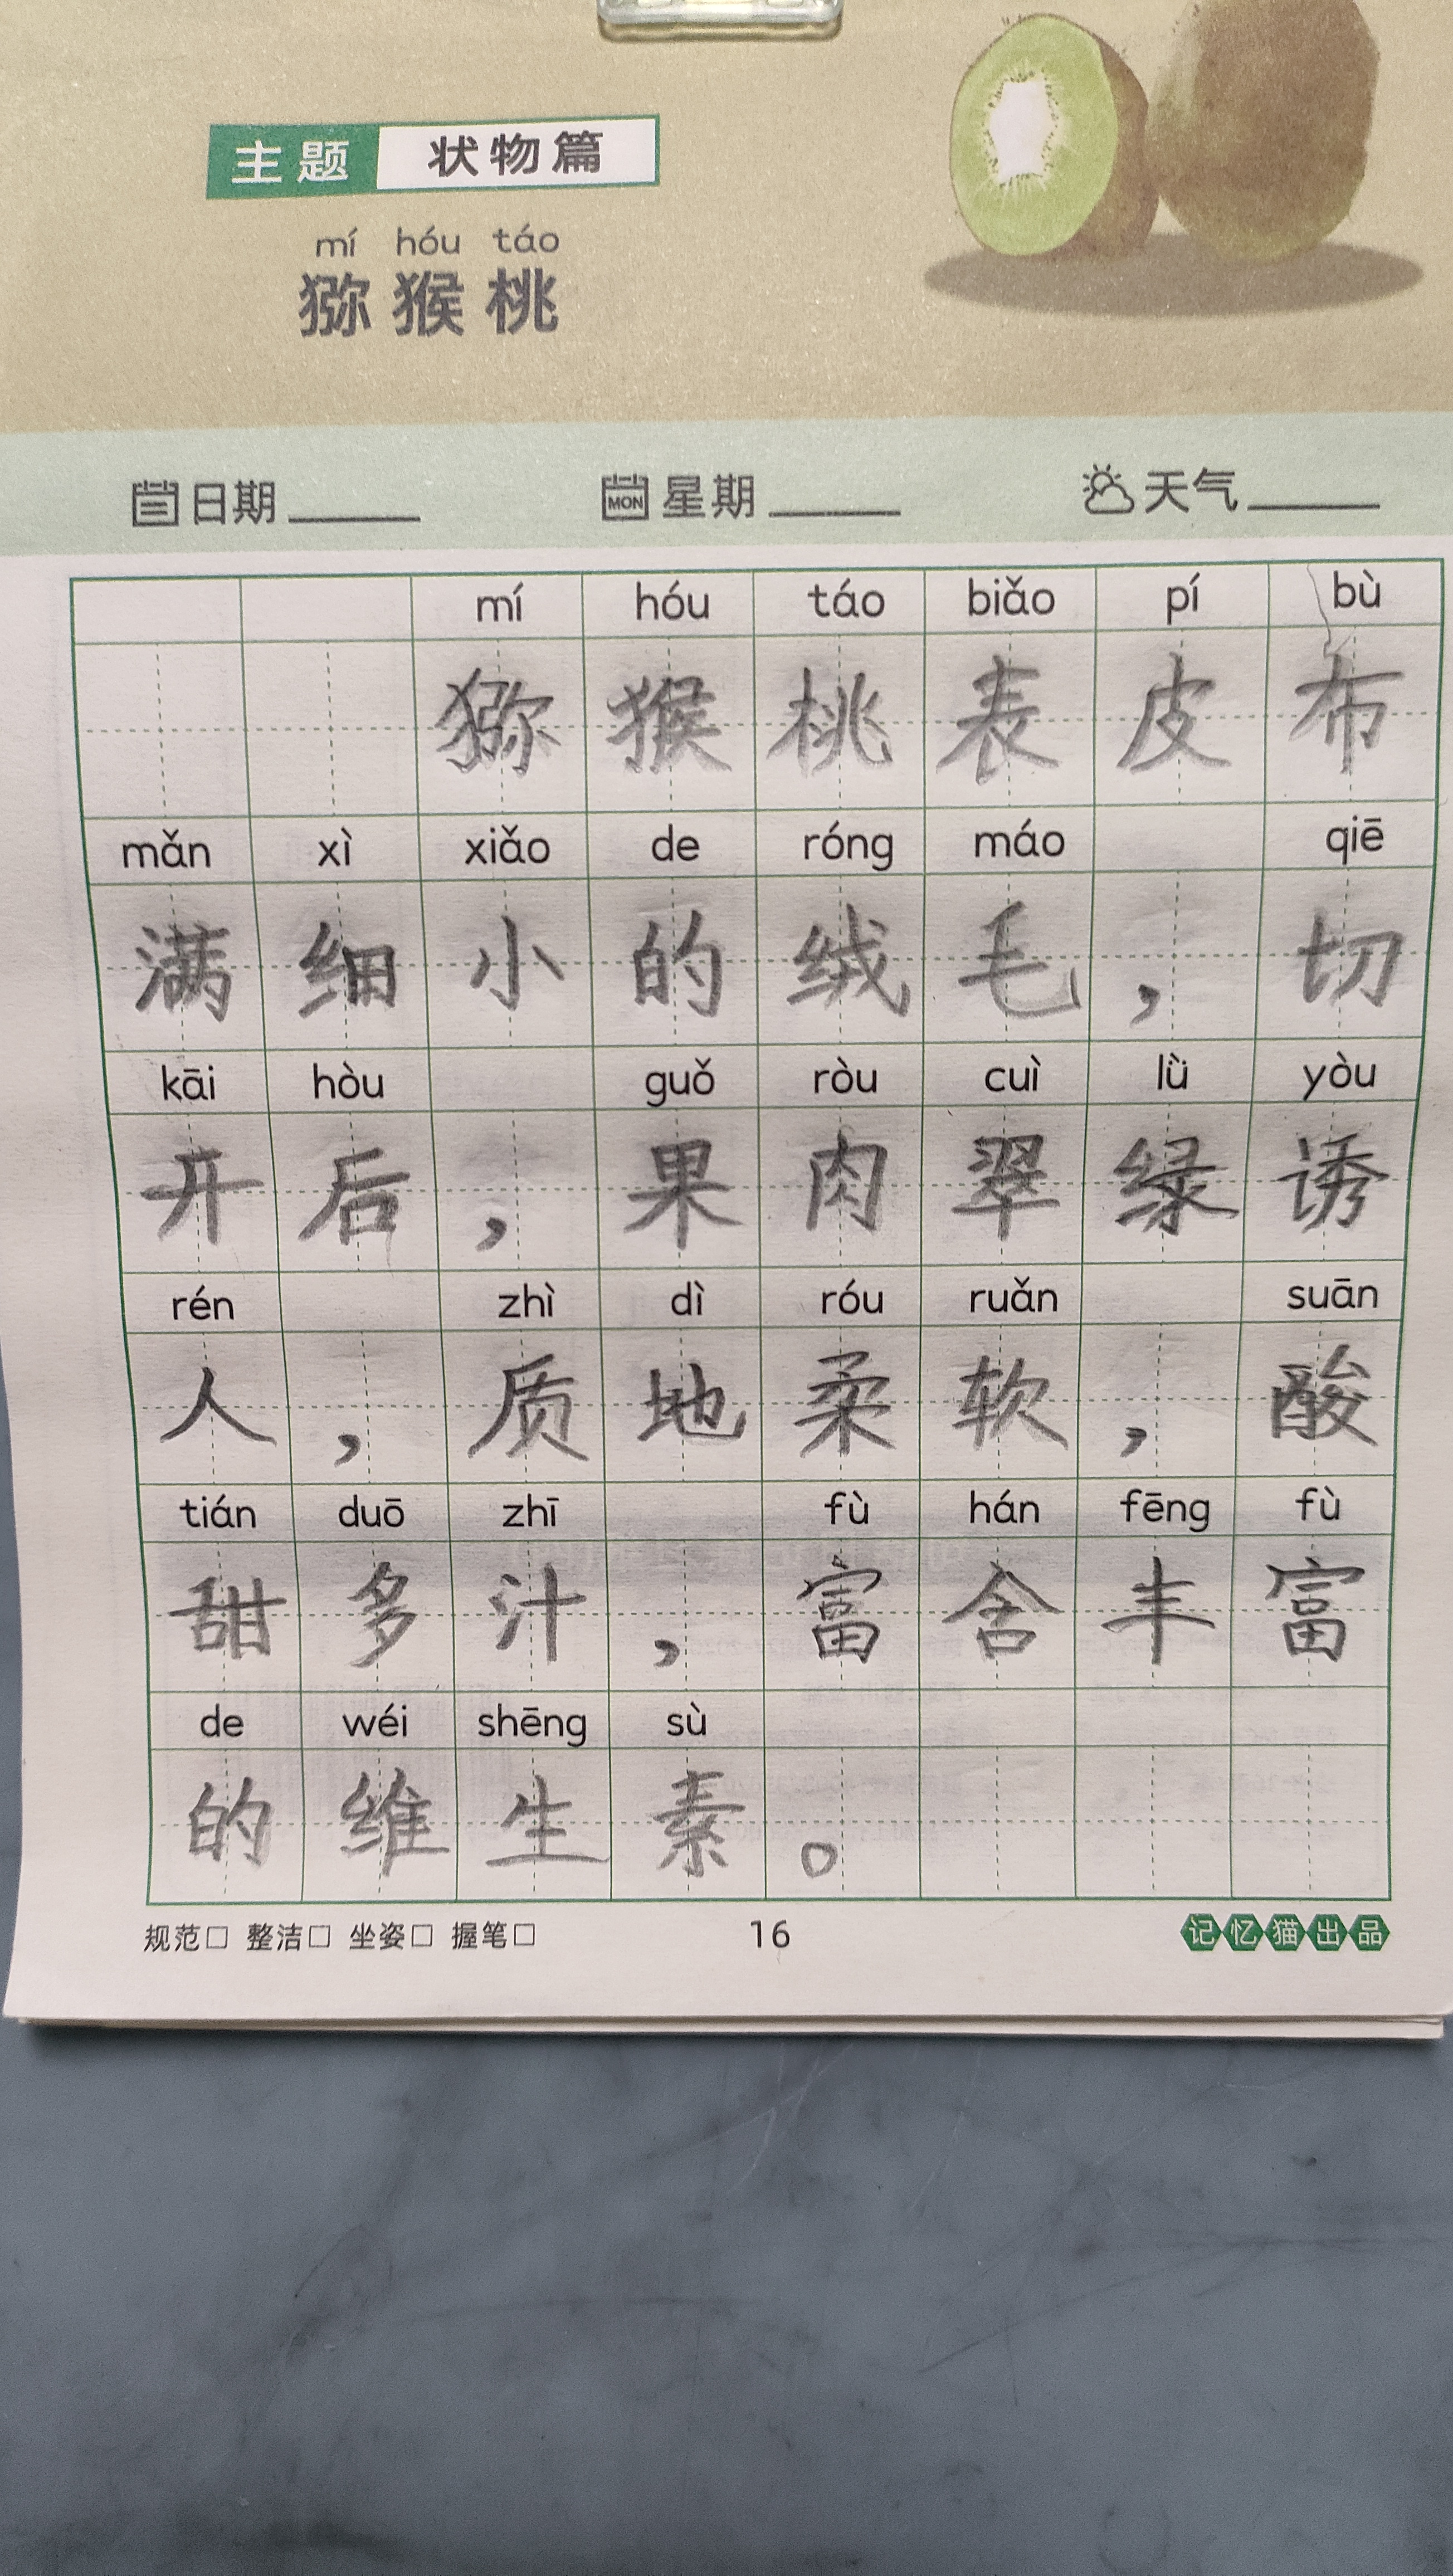 主题 状物篇
mí hóu táo
猕猴桃
日期 MON 星期 天气
mí hóu táo biǎo pí bù
猕猴桃表皮布
mǎn xì xiǎo de róng máo qiē
满细小的绒毛，切
kāi hòu guǒ ròu cuì lǜ yòu
开后，果肉翠绿诱
rén zhì dì róu ruǎn suān
人，质地柔软，酸
tián duō zhī fù hán fēng fù
甜多汁，富含丰富
de wéi shēng sù
的维生素。
规范□ 整洁□ 坐姿□ 握笔□ 16 记忆猫出品